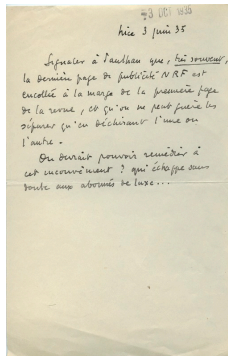 3 OCT 1935
Nice 3 juin 35
Signaler à Paulhan que, très souvent,
la dernière page de publicité NRF est
encollée à la marge de la première page
de la revue, et qu'on ne peut guère les
séparer qu'en déchirant l'une ou
l'autre.
On devrait pouvoir remédier à
cet inconvénient ? qui échappe sans
doute aux abonnés de luxe...